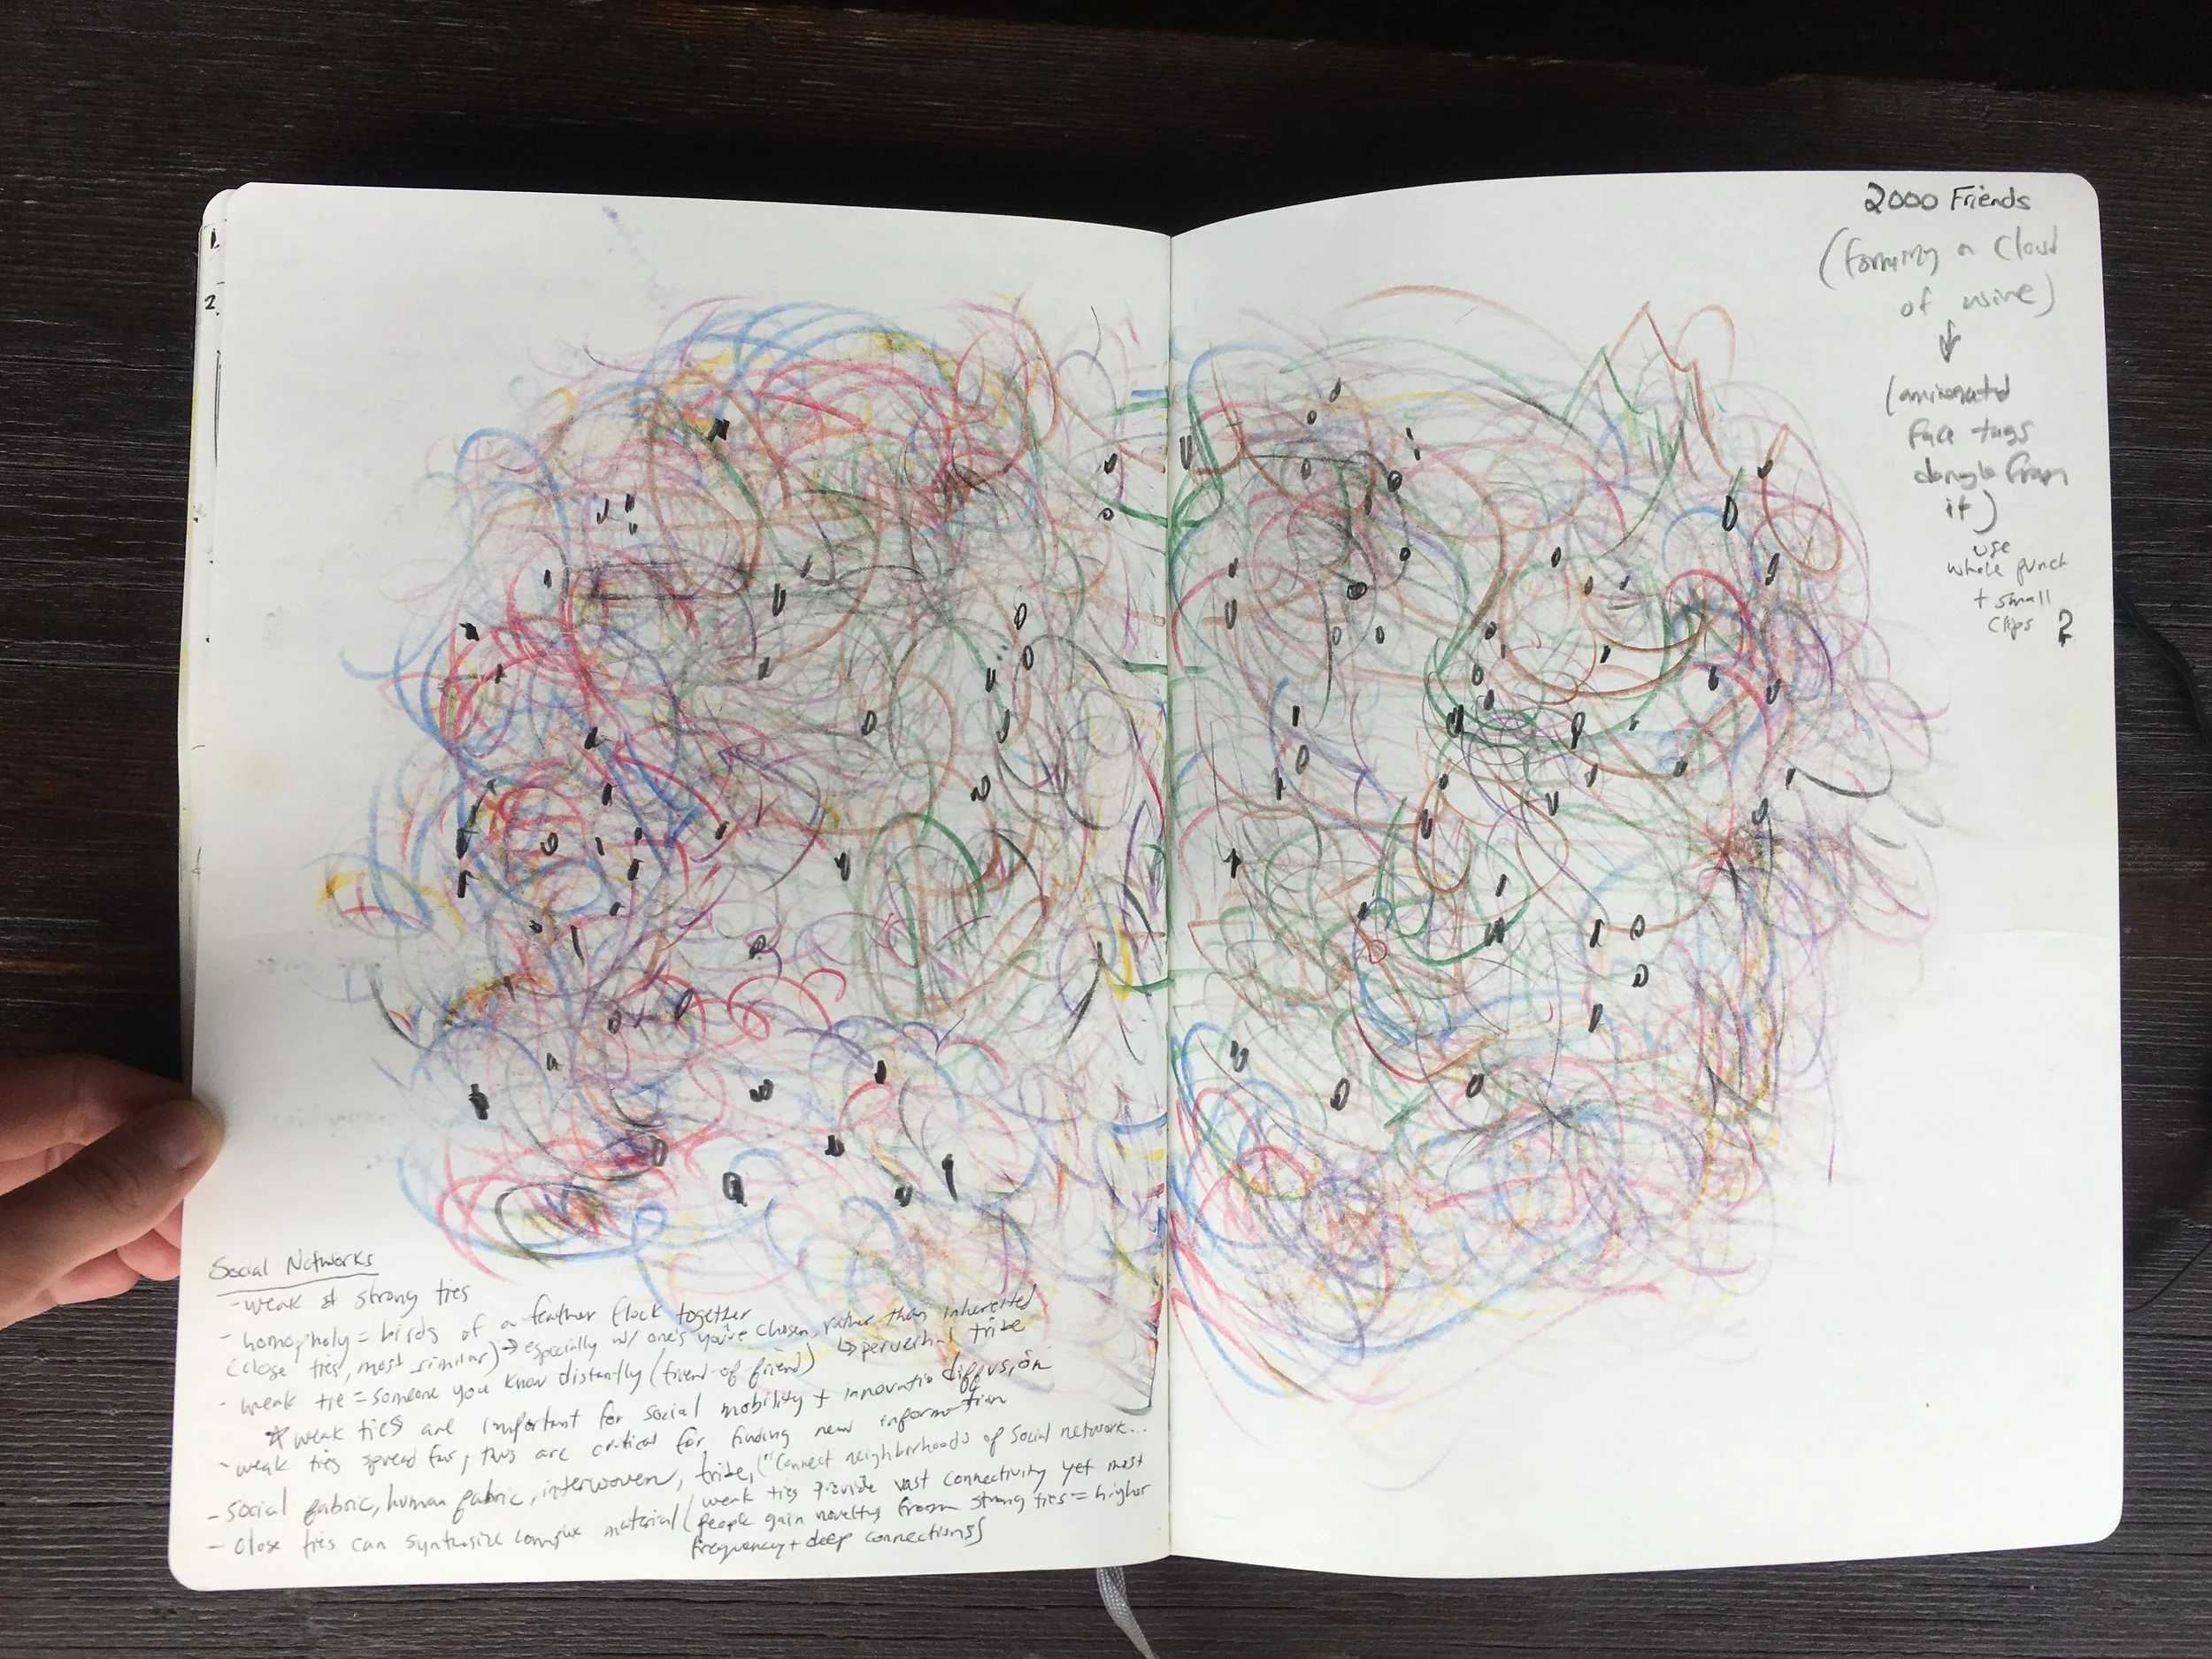 Social Networks
- weak & strong ties
- homophily = birds of a feather flock together
(close ties, most similar) → especially w/ one's you've chosen, rather than inherited
↳ perverbial tribe
- weak tie = someone you know distantly (friend-of-friend)
* weak ties are important for social mobility + innovatio diffusion
- weak ties spread far, thus are critical for finding new information
- social fabric, human fabric, interwoven, tribe, ("connect neighborhoods of social network...
- close ties can synthesize complex material (weak ties provide vast connectivity yet most
people gain novelty from strong ties = higher
frequency + deep connections)
2000 Friends
(forming a cloud
of wire)
↓
(animated
face tags
dangle from
it)
use
whole punch
+ small
clips ?
1.
2.